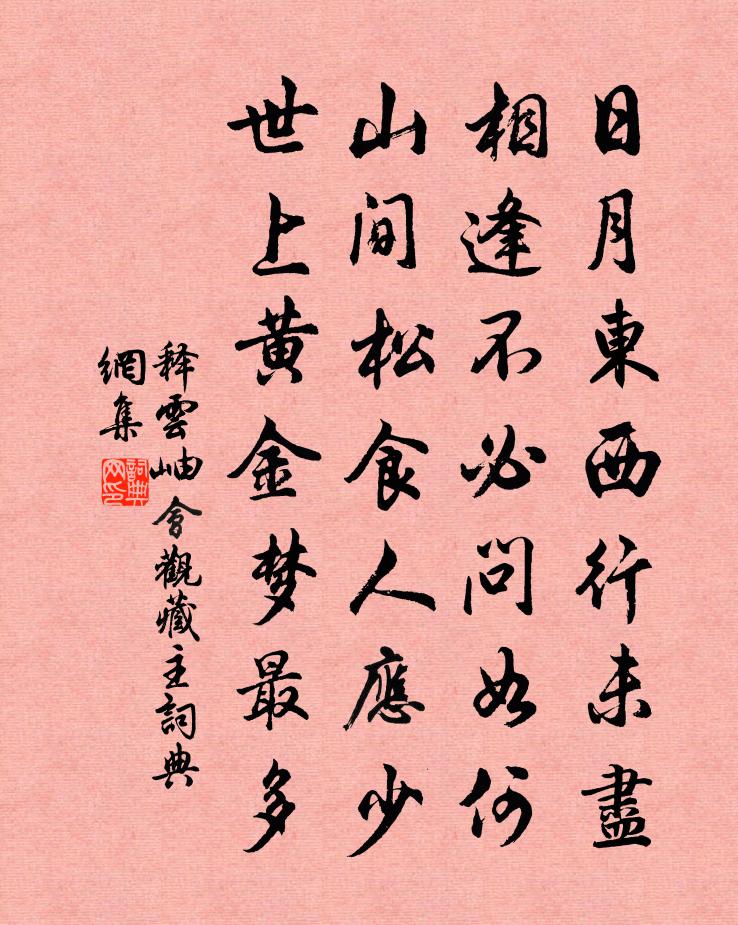 日月東西行未盡
相逢不必問如何
山間松食人應少
世上黄金梦最多
释雲岫會觀藏主詞典
網集
詞典
网印